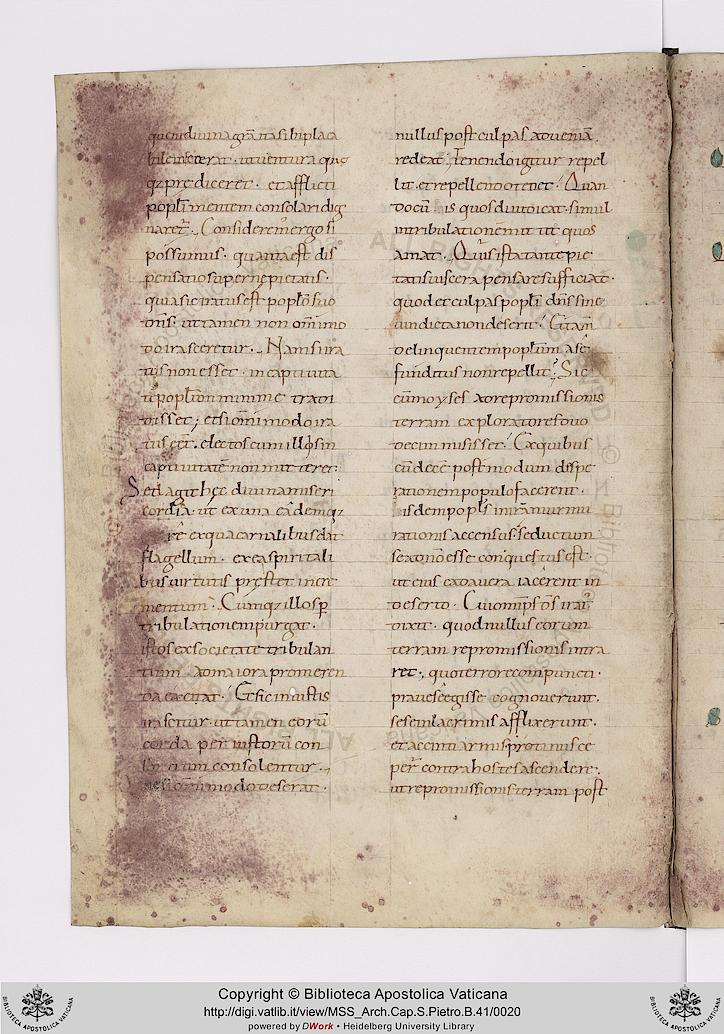 quendiuina gr̄a ita sibi placa
bilem fecerat · ut uentura quęq
q; prediceret · et afflicti
popl̄i mentem consolari dig
naret̄ ., Consideremꝰ ergo si
possumus · quanta est dis
pensatio supernę pietatis ·
quia sic iratus est popl̄o suo
dn̄s · ut tamen non om̄imo
do irasceretur ., Nam si ira
tus non esset · in captiuita
tē popl̄um minime tradi
disset ; et si om̄i modo ira
tus eēt · electos cum illo ꝓ sin
captiuitatē non mitteret :
Sed agit hęc diuina miseri
cordia · ut ex una eademq;
re ex qua carnalibus dat
flagellum · exea spiritali
bus uirtutis pręstet incre
mentum · Cumq; illos ꝑ
tribulationem purgat ·
istos ex societate tribulan
tium · ad maiora promeren
da excitat · Et sic iniustis
irascitur · ut tamen eorū
corda per iustorū con
sortium consolentur .,
ne si om̄i modo deserat ·
nullus post culpas ad ueniā
redeat ., Tenendo igitur repel
lit · et repellendo tenet · Quan
do cū is quos diiudicat · simul
in tribulationē mittit quos
amat · Quis ista tantę pie
tatis uiscera pensare sufficiat ·
quod et culpas popl̄i dn̄s sine
uindicta non deserit · Et tam̄
delinquentem popl̄um a se
funditus non repellit ; Sic
cū moyses ad repromissionis
terram exploratores duo
decim misisset · Ex quibus
cū decē postmodum despe
rationem populo facerent ·
isdem popl̄s in ira murmu
rationis accensus · seductum
se a dn̄o esse conquestus est ·
ut eius cadauera iacerent in
deserto · Cui om̄ps ds̄ iratꝰ
dixit · quod nullus eorum
terram repromissionis intra
ret ., quo terrore compuncti ·
praue se egisse cognouerunt ·
sese in lacrimis afflixerunt ·
et accinti armis protinus ce
per̄ contra hostes ascendere ·
ut repromissionis terram post
Copyright © Biblioteca Apostolica Vaticana
http://digi.vatlib.it/view/MSS_Arch.Cap.S.Pietro.B.41/0020
powered by DWork • Heidelberg University Library